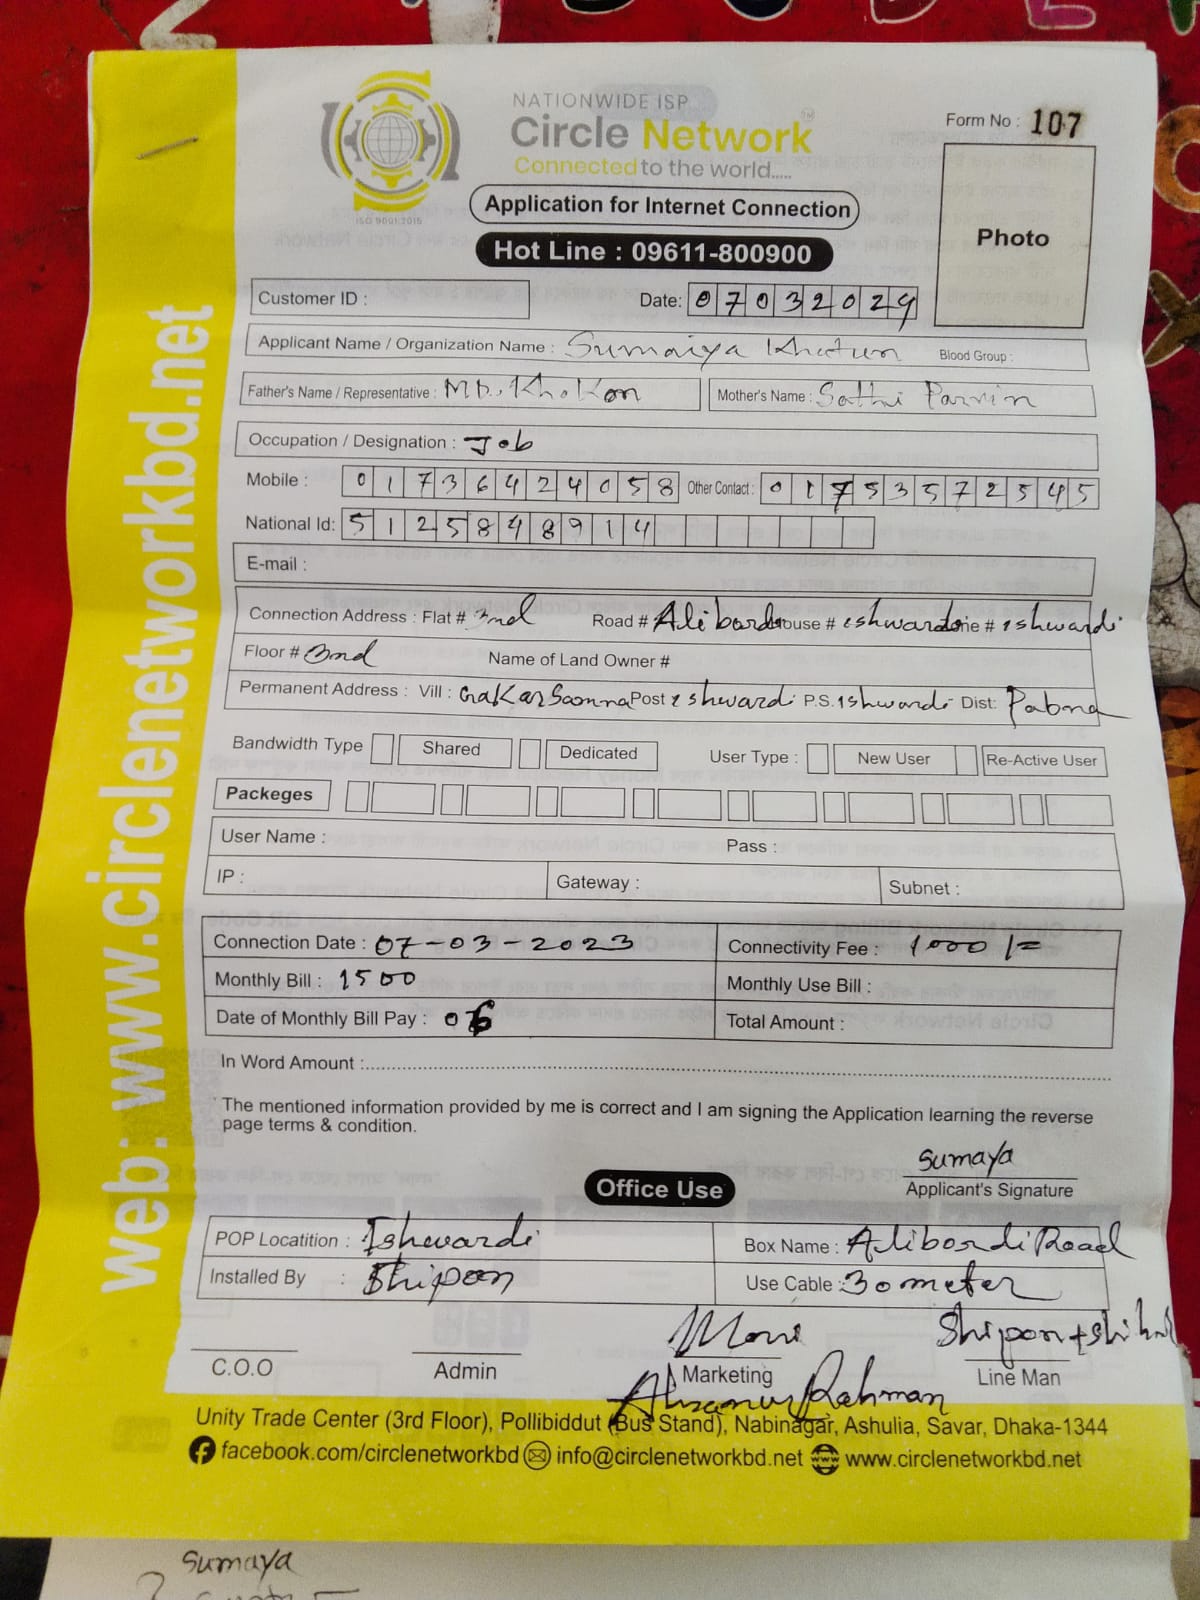 NATIONWIDE ISP
Circle Network
Connected to the world.....
ISO 9001:2015
Form No : 107
Application for Internet Connection
Hot Line : 09611-800900
Photo
web: www.circlenetworkbd.net
Customer ID :
Date: 07032024
Applicant Name / Organization Name : Sumaiya Khatun Blood Group :
Father's Name / Representative : MD. Khokon Mother's Name : Sathi Parvin
Occupation / Designation : Job
Mobile : 01736424058 Other Contact : 01753572545
National Id: 5125848914
E-mail :
Connection Address : Flat # 3nd Road # Alibordi House # eshwardi Zone # Ishwardi
Floor # 3nd Name of Land Owner #
Permanent Address : Vill : Post Ishwardi P.S. Ishwardi Dist: Pabna
Bandwidth Type Shared Dedicated User Type : New User Re-Active User
Packeges
User Name : Pass :
IP : Gateway : Subnet :
Connection Date : 07-03-2023 Connectivity Fee : 1000/=
Monthly Bill : 1500 Monthly Use Bill :
Date of Monthly Bill Pay : 06 Total Amount :
In Word Amount :
The mentioned information provided by me is correct and I am signing the Application learning the reverse
page terms & condition.
Sumaya
Applicant's Signature
Office Use
POP Locatition : Ishwardi Box Name : Alibordi Road
Installed By : Shipon Use Cable : 30 meter
Moni Shipon +
C.O.O Admin Marketing Line Man
Ahsanur Rahman
Unity Trade Center (3rd Floor), Pollibiddut (Bus Stand), Nabinagar, Ashulia, Savar, Dhaka-1344
facebook.com/circlenetworkbd info@circlenetworkbd.net www.circlenetworkbd.net
Sumaya